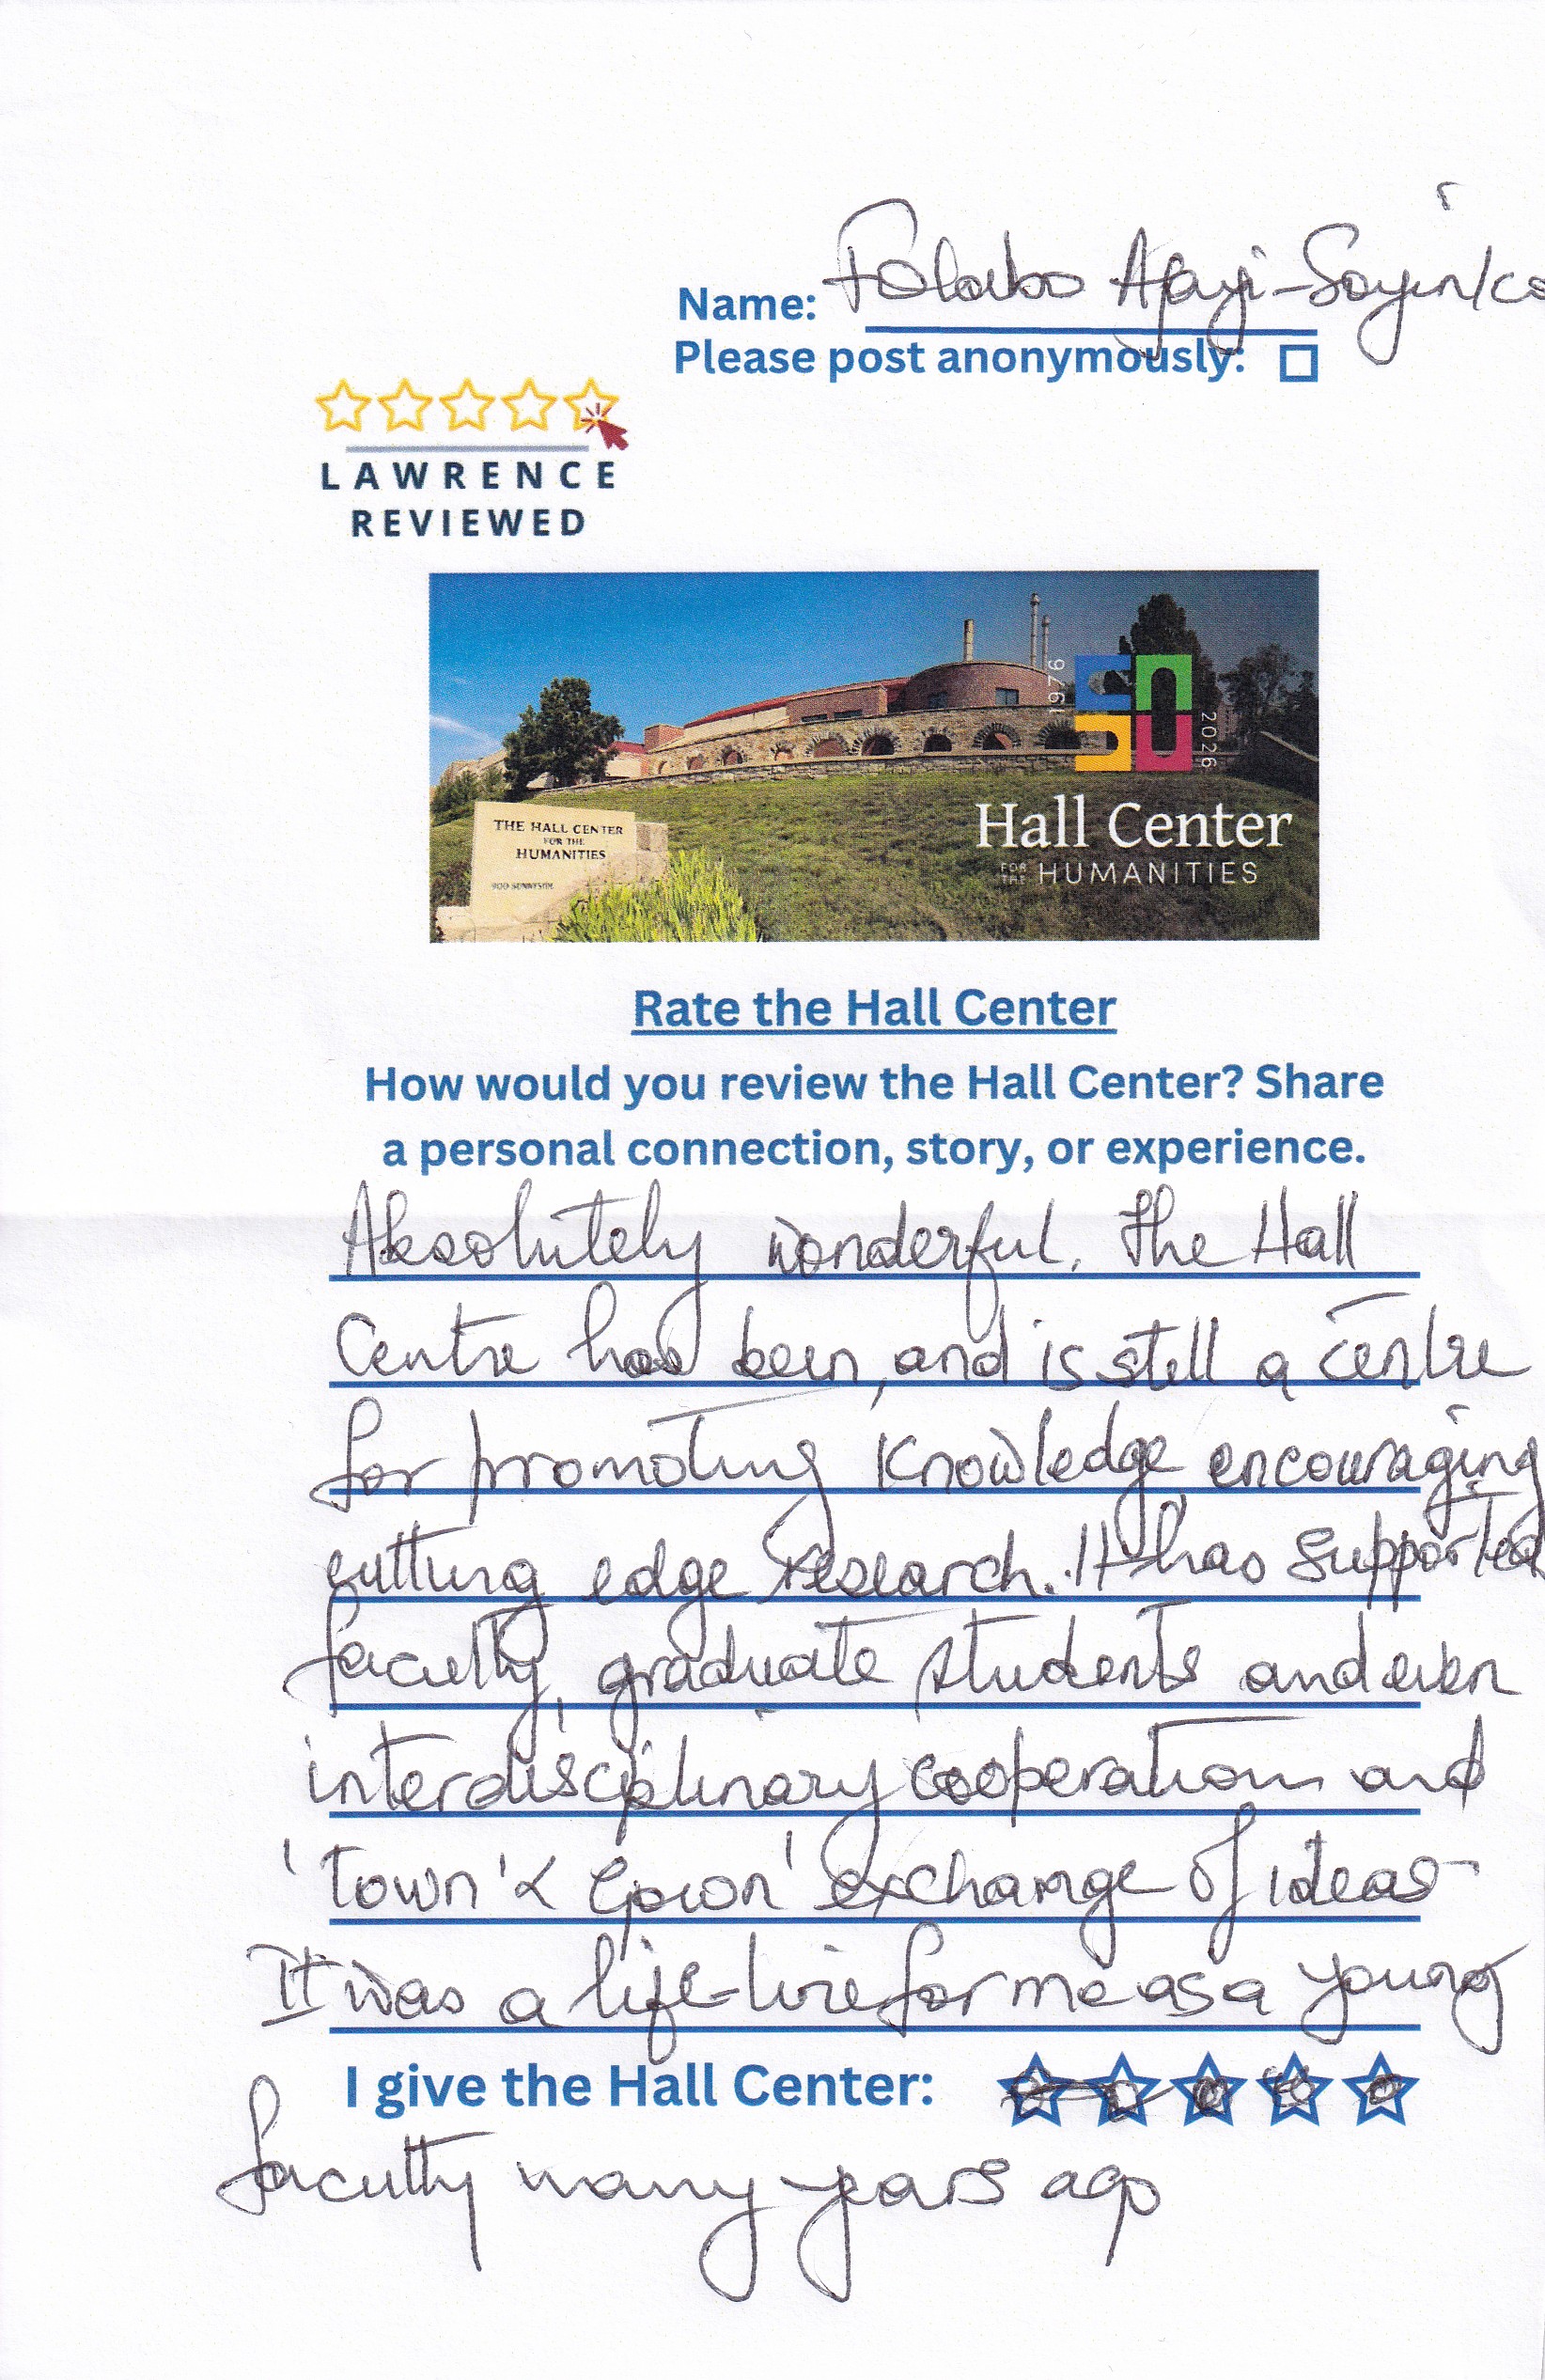 Name: Folabo Ajayi-Soyinka
Please post anonymously:
LAWRENCE
REVIEWED
1976
50
2026
THE HALL CENTER
FOR THE
HUMANITIES
900 SUNNYSIDE
Hall Center
FOR THE HUMANITIES
Rate the Hall Center
How would you review the Hall Center? Share
a personal connection, story, or experience.
Absolutely wonderful. The Hall
Centre has been, and is still a centre
for promoting knowledge encouraging
cutting edge research. It has supported
faculty, graduate students and even
interdisciplinary cooperation and
'town' & Gown' exchange of ideas
It was a life-line for me as a young
I give the Hall Center:
faculty many years ago